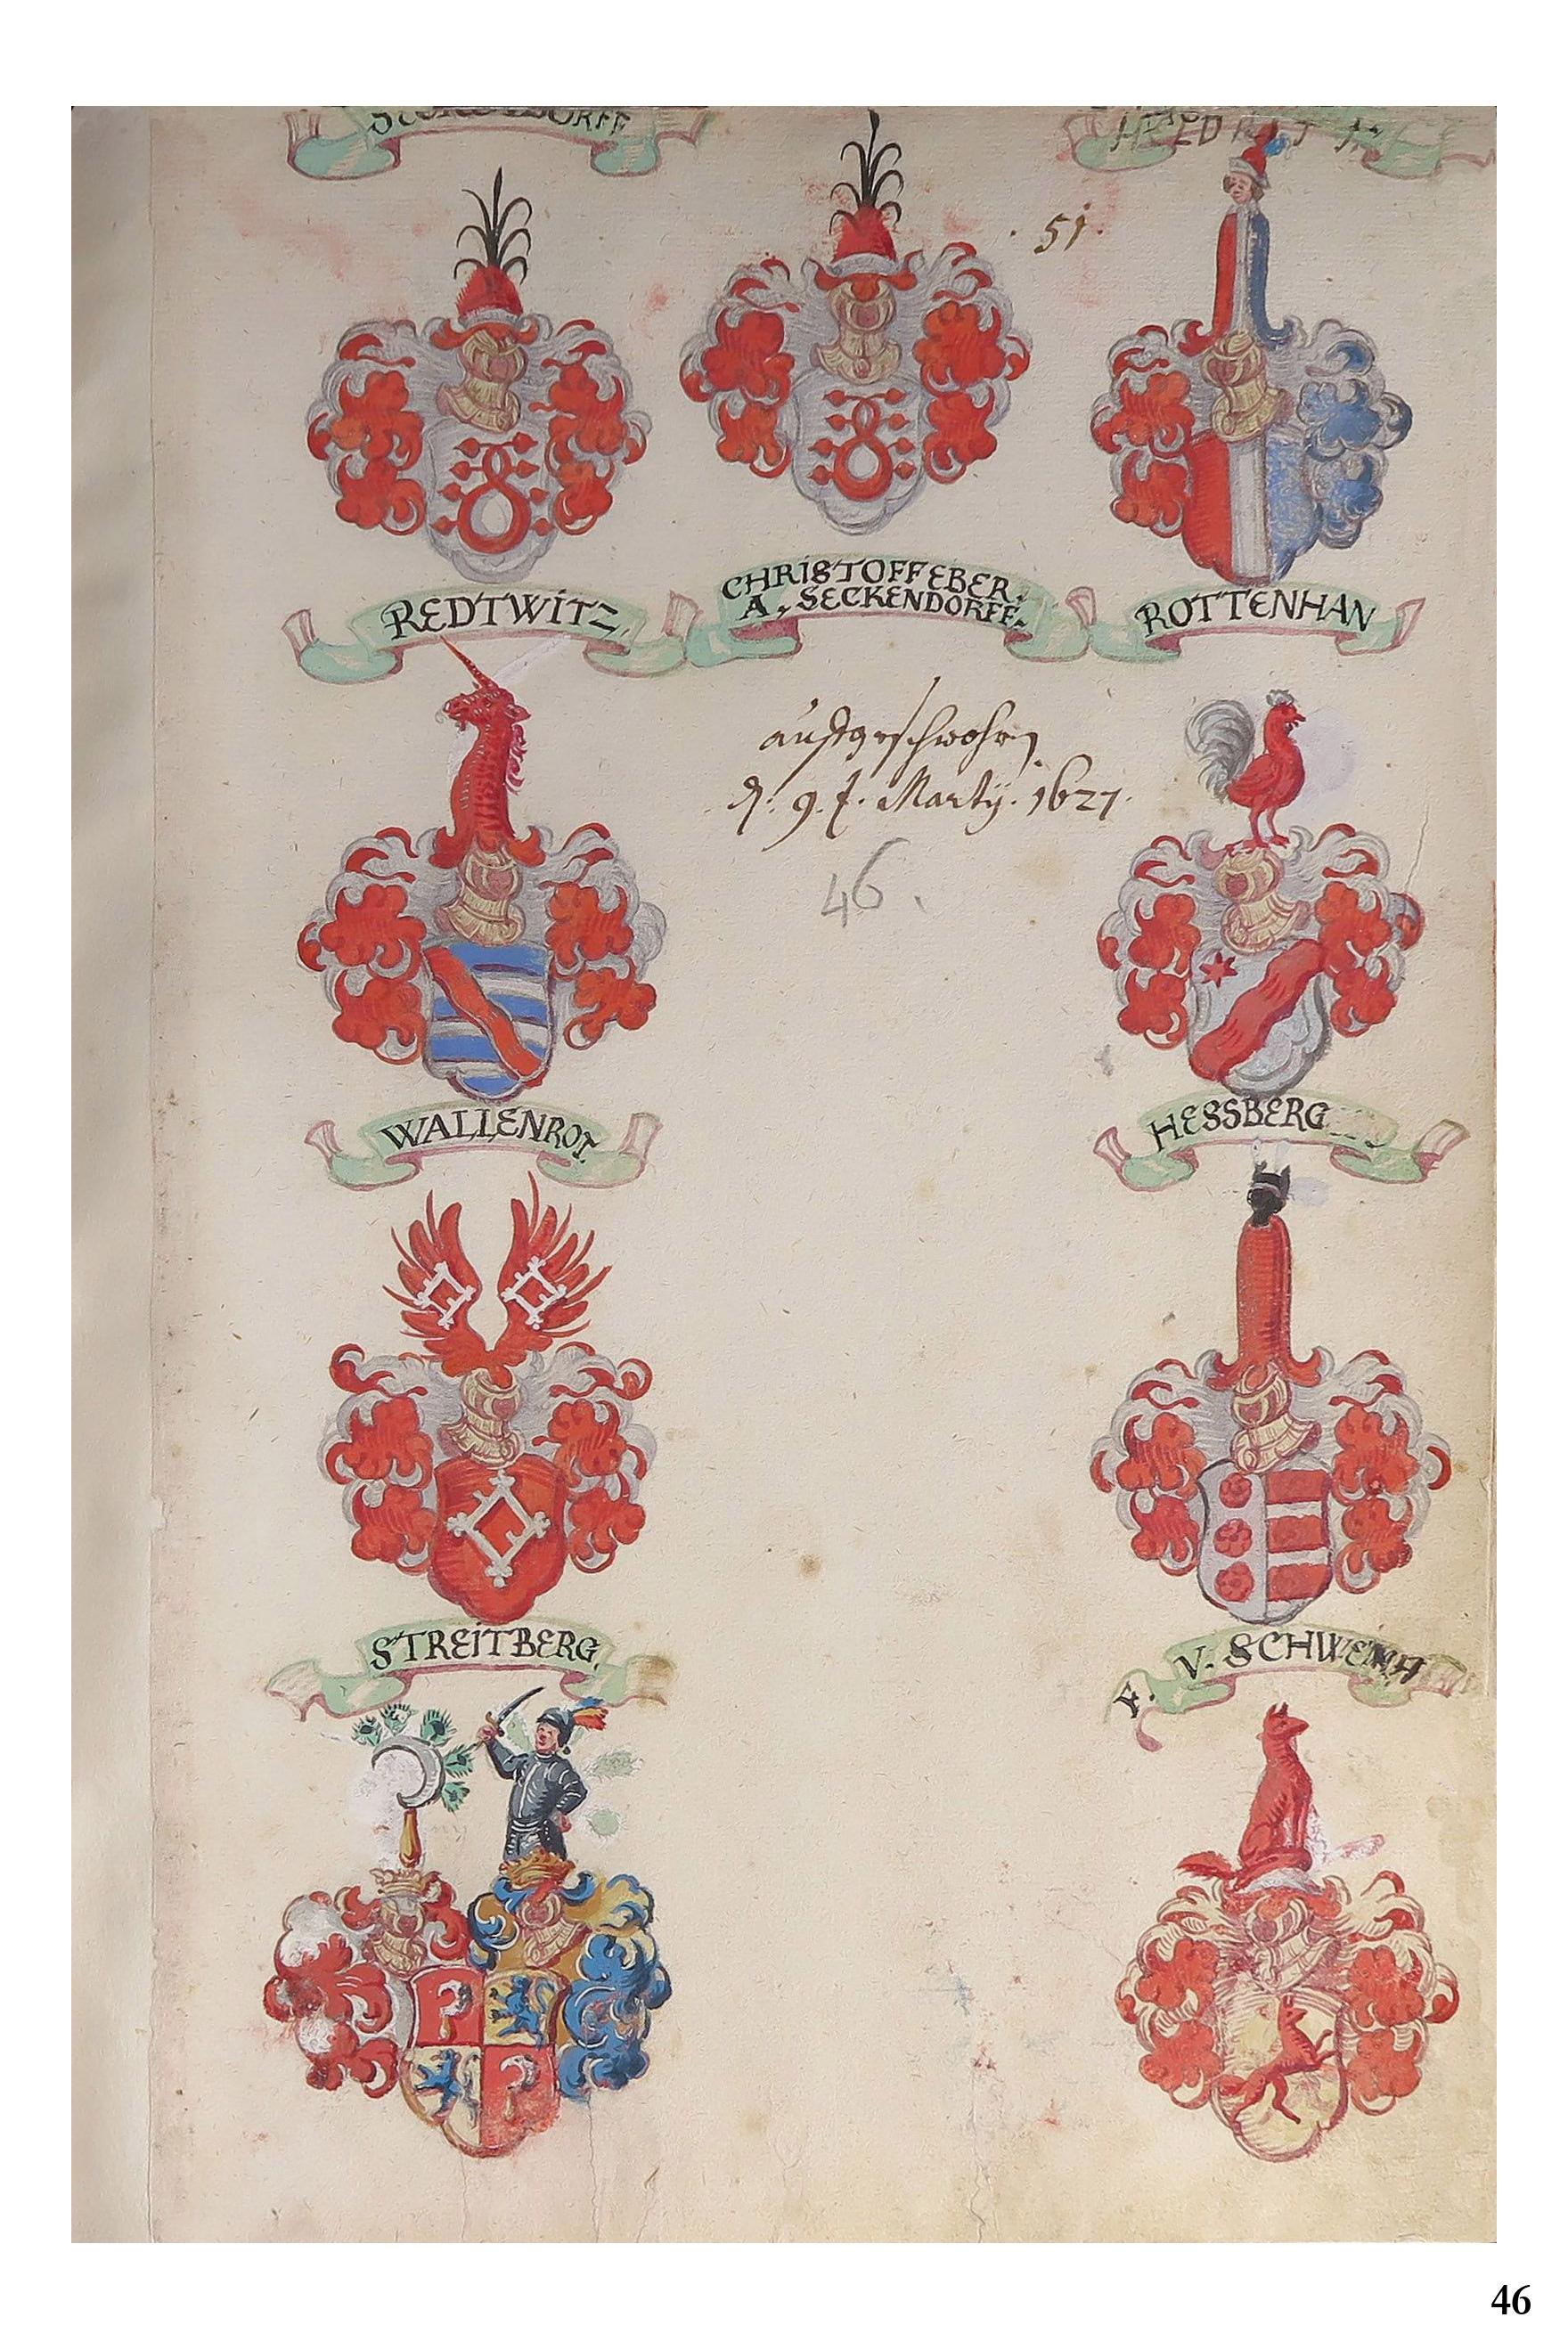 SECKENDORFF
HELDRIT
. 51.
REDTWITZ.
CHRISTOFF EBER.
A. SECKENDORFF.
ROTTENHAN
aufgeschwohrn
d. 9. t. Martij. 1627.
46.
WALLENROT.
HESSBERG
STREITBERG.
V. SCHWEINH
46